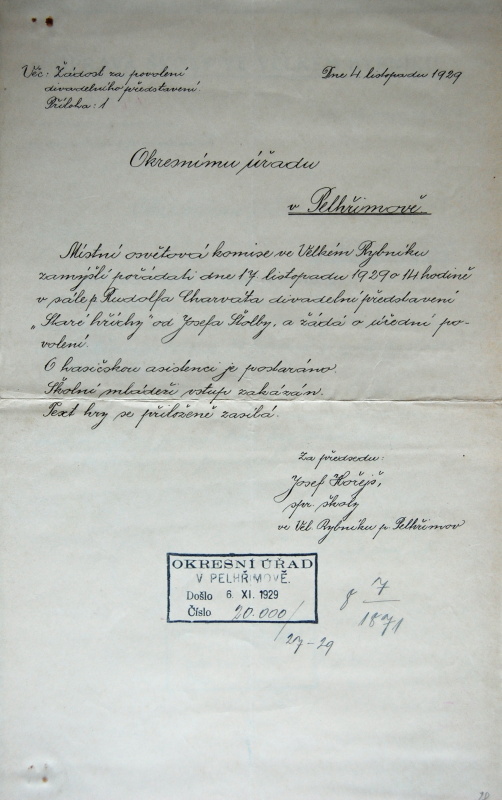 Věc: Žádost za povolení
divadelního představení.
Příloha: 1
Dne 4. listopadu 1929
Okresnímu úřadu
v Pelhřimově
Místní osvětová komise ve Velkém Rybníku
zamýšlí pořádati dne 17. listopadu 1929 o 14 hodině
v sále p. Rudolfa Charváta divadelní představení
„Staré hříchy" od Josefa Štolby, a žádá o úřední po-
volení.
O hasičskou asistenci je postaráno.
Školní mládeži vstup zakázán.
Text hry se přiloženě zasílá.
Za předsedu:
Josef Hořejš,
spr. školy
ve Vel. Rybníku p. Pelhřimov
OKRESNÍ ÚŘAD
V PELHŘIMOVĚ.
Došlo 6. XI. 1929
Číslo 20.000/
27-29
8 7/1871